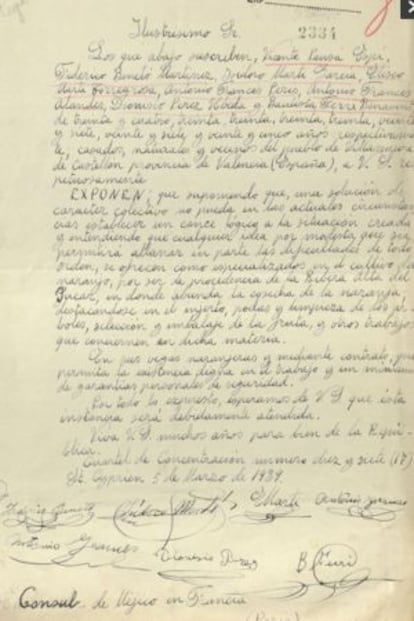 Ilustrísimo Sr.
2334
Los que abajo suscriben, Vicente Pausa Espí,
Federico Benetó Martínez, Isidoro Martí García, Eliseo
Martí Torregrosa, Antonio Frances Peris, Antonio Frances
Atander, Dionisio Perez Ubeda y Bautista Ferri Benavent
de treinta y cuatro, treinta, treinta, treinta, treinta, veinte
y siete, veinte y siete, y veinte y cinco años respectivamen
te, casados, naturales y vecinos del pueblo de Villanueva
de Castellón provincia de Valencia (España), a V. S. res
petuosamente
EXPONEN: que suponiendo que, una solución de
caracter colectivo no pueda en las actuales circunstan
cias establecer un cauce lógico a la situación creada
y entendiendo que cualquier idea por modesta que sea
permitirá allanar en parte las dificultades de todo
orden, se ofrecen como especializados en el cultivo del
naranjo, por ser de procedencia de la Ribera Alta del
Jucar, en donde abunda la cosecha de la naranja,
destacandose en el injerto, podas y limpieza de los ar
boles, selección y embalaje de la fruta, y otros trabajos
que conciernen en dicha materia.
En las vegas naranjeras y mediante contrato, que
permita la existencia digna en el trabajo y un minimum
de garantias personales de seguridad.
Por todo lo expuesto, esperamos de V. S. que ésta
instancia será debidamente atendida.
Viva V. S. muchos años para bien de la Repú-
blica.
Cuartel de Concentración número diez y siete (17)
St. Cyprien 5 de Marzo de 1939.
Federico Benetó Isidoro Martí E Martí Antonio Frances
Antonio Frances Dionisio Perez B. Ferri
Consul de Méjico en Francia
(Paris)